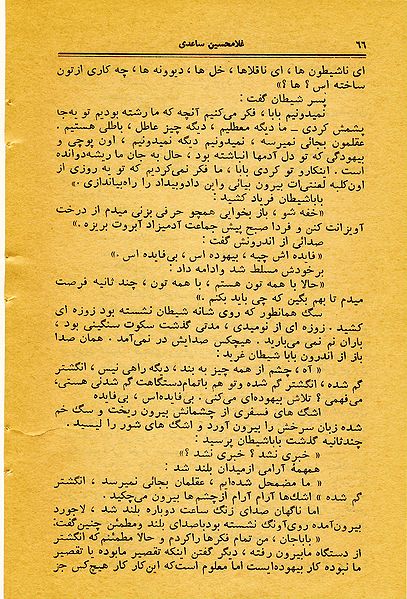 ۶۶ غلامحسین ساعدی
ای ناشیطون ها ، ای ناقلاها ، خل ها ، دیوونه ها ، چه کاری ازتون
ساخته اس ؟ ها ؟»
پسر شیطان گفت :
نمیدونیم بابا ، فکر می‌کنیم آنچه که ما رشته بودیم تو به‌جا
پشمش کردی ـ ما دیگه معطلیم ، دیگه چیز عاطل ، باطلی هستیم .
عقلمون بجائی نمیرسه ، نمیدونیم دیگه نمیدونیم ، اون پوچی و
بیهودگی که تو دل آدمها انباشته بود ، حال به جان ما ریشه‌دوانده
است . اینکارو تو کردی بابا ، ما فکر نمی‌کردیم که تو یه روزی از
اون‌کلبه لعنتی‌ات بیرون بیائی واین دادوبیداد را راه‌بیاندازی .»
باباشیطان فریاد کشید :
«خفه شو ، باز بخوابی همچو حرفی بزنی میدم از درخت
آویزانت کنن و فردا صبح پیش جماعت آدمیزاد آبروت بریزه .»
صدائی از اندرونش گفت :
« فایده اش چیه ، بیهوده اس ، بی‌فایده اس .»
برخودش مسلط شد وادامه داد :
«حالا با همه تون هستم ، با همه تون ، چند ثانیه فرصت
میدم تا بهم بگین که چی باید بکنم .»
سگ همانطور که روی شانه شیطان نشسته بود زوزه ای
کشید . زوزه ای از نومیدی ، مدتی گذشت سکوت سنگینی بود ،
باران نم نمی می‌بارید . هیچکس صدایش در نمی‌آمد . همان صدا
باز از اندرون بابا شیطان غرید :
« آه ، چشم از همه چیز به بند ، دیگه راهی نیس ، انگشتر
گم شده ، انگشتر گم شده وتو هم باتمام‌دستگاهت گم شدنی هستی،
می‌فهمی ؟ تلاش بیهوده‌ای می‌کنی . بی‌فایده‌اس ، بی‌فایده
اشگ های فسفری از چشمانش بیرون ریخت و سگ خم
شده زبان سرخش را بیرون آورد و اشگ های شور را لیسید .
چندثانیه گذشت باباشیطان پرسید :
« خبری نشد ؟ خبری نشد ؟»
همهمهٔ آرامی ازمیدان بلند شد :
« ما مضمحل شده‌ایم ، عقلمان بجائی نمیرسد ، انگشتر
گم شده » اشك‌ها آرام آرام ازچشم‌ها بیرون می‌چکید .
اما ناگهان صدای زنگ ساعت دوباره بلند شد ، لاجورد
بیرون‌آمده روی‌آونگ نشسته بودباصدای بلند ومطمئن چنین‌گفت:
« باباجان ، من تمام فکرها راکردم و حالا مطمئنم‌که انگشتر
از دستگاه مابیرون رفته ، دیگر گفتن اینکه تقصیر مابوده یا تقصیر
ما نبوده کار بیهوده‌ایست اما معلوم است‌که این‌کار کار هیچ‌کس جز